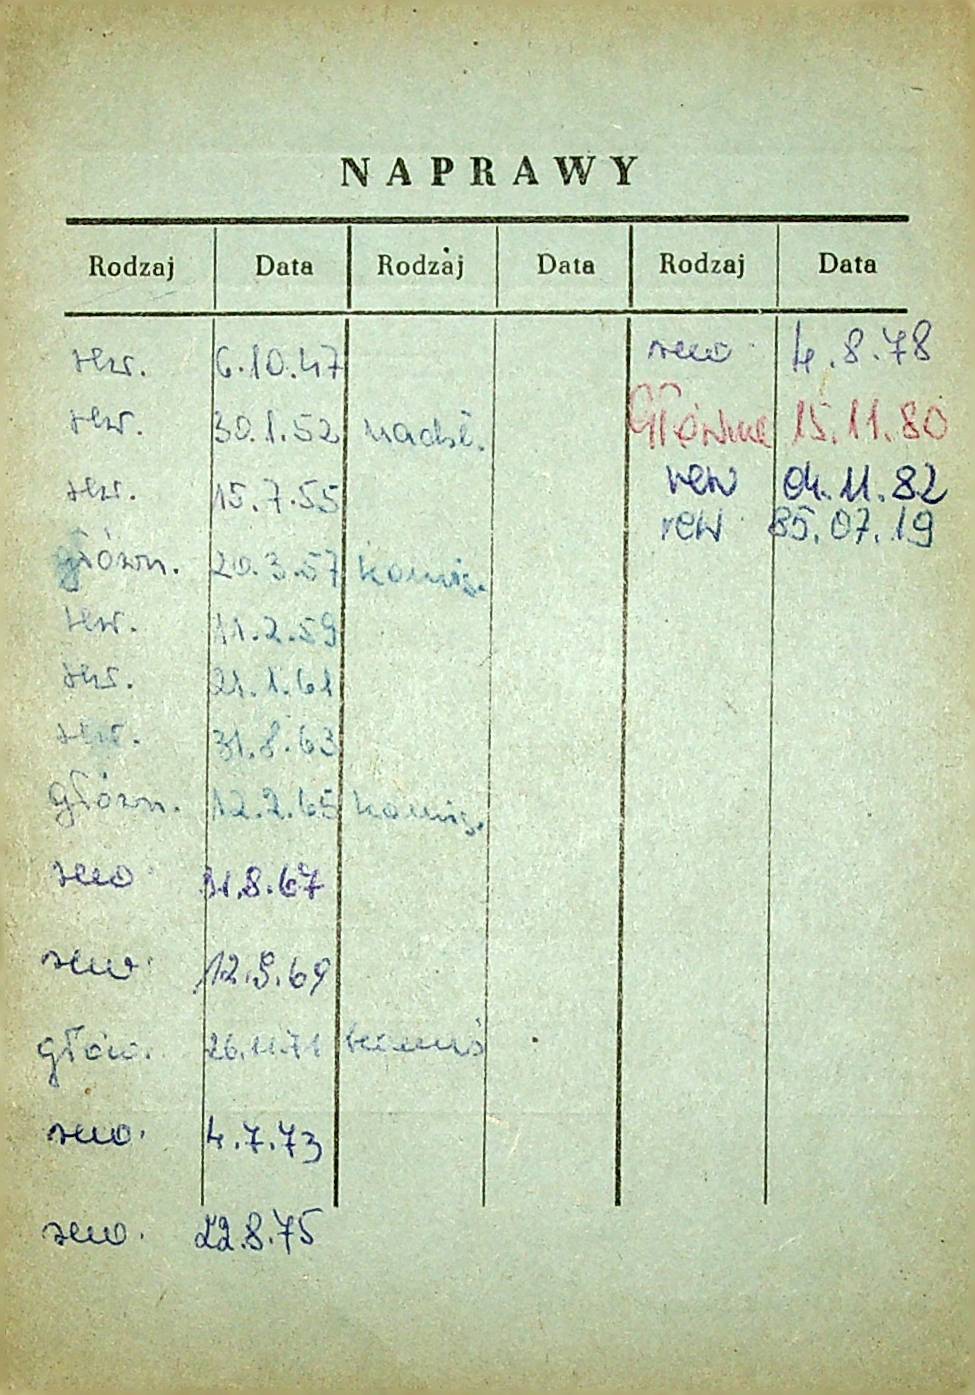 NAPRAWY
Rodzaj Data Rodzaj Data Rodzaj Data
rew. 6.10.47 rew. 4.8.78
rew. 30.1.52 nadśl. Główne 15.11.80
rew. 15.7.55 rew 04.11.82
rew 85.07.19
główn. 20.3.57 komis.
rew. 11.2.59
rew. 21.1.61
rew. 31.8.63
główn. 12.2.65 komis.
rew. 31.8.67
rew. 12.9.69
głów. 26.11.71
rew. 4.7.73
rew. 22.8.75